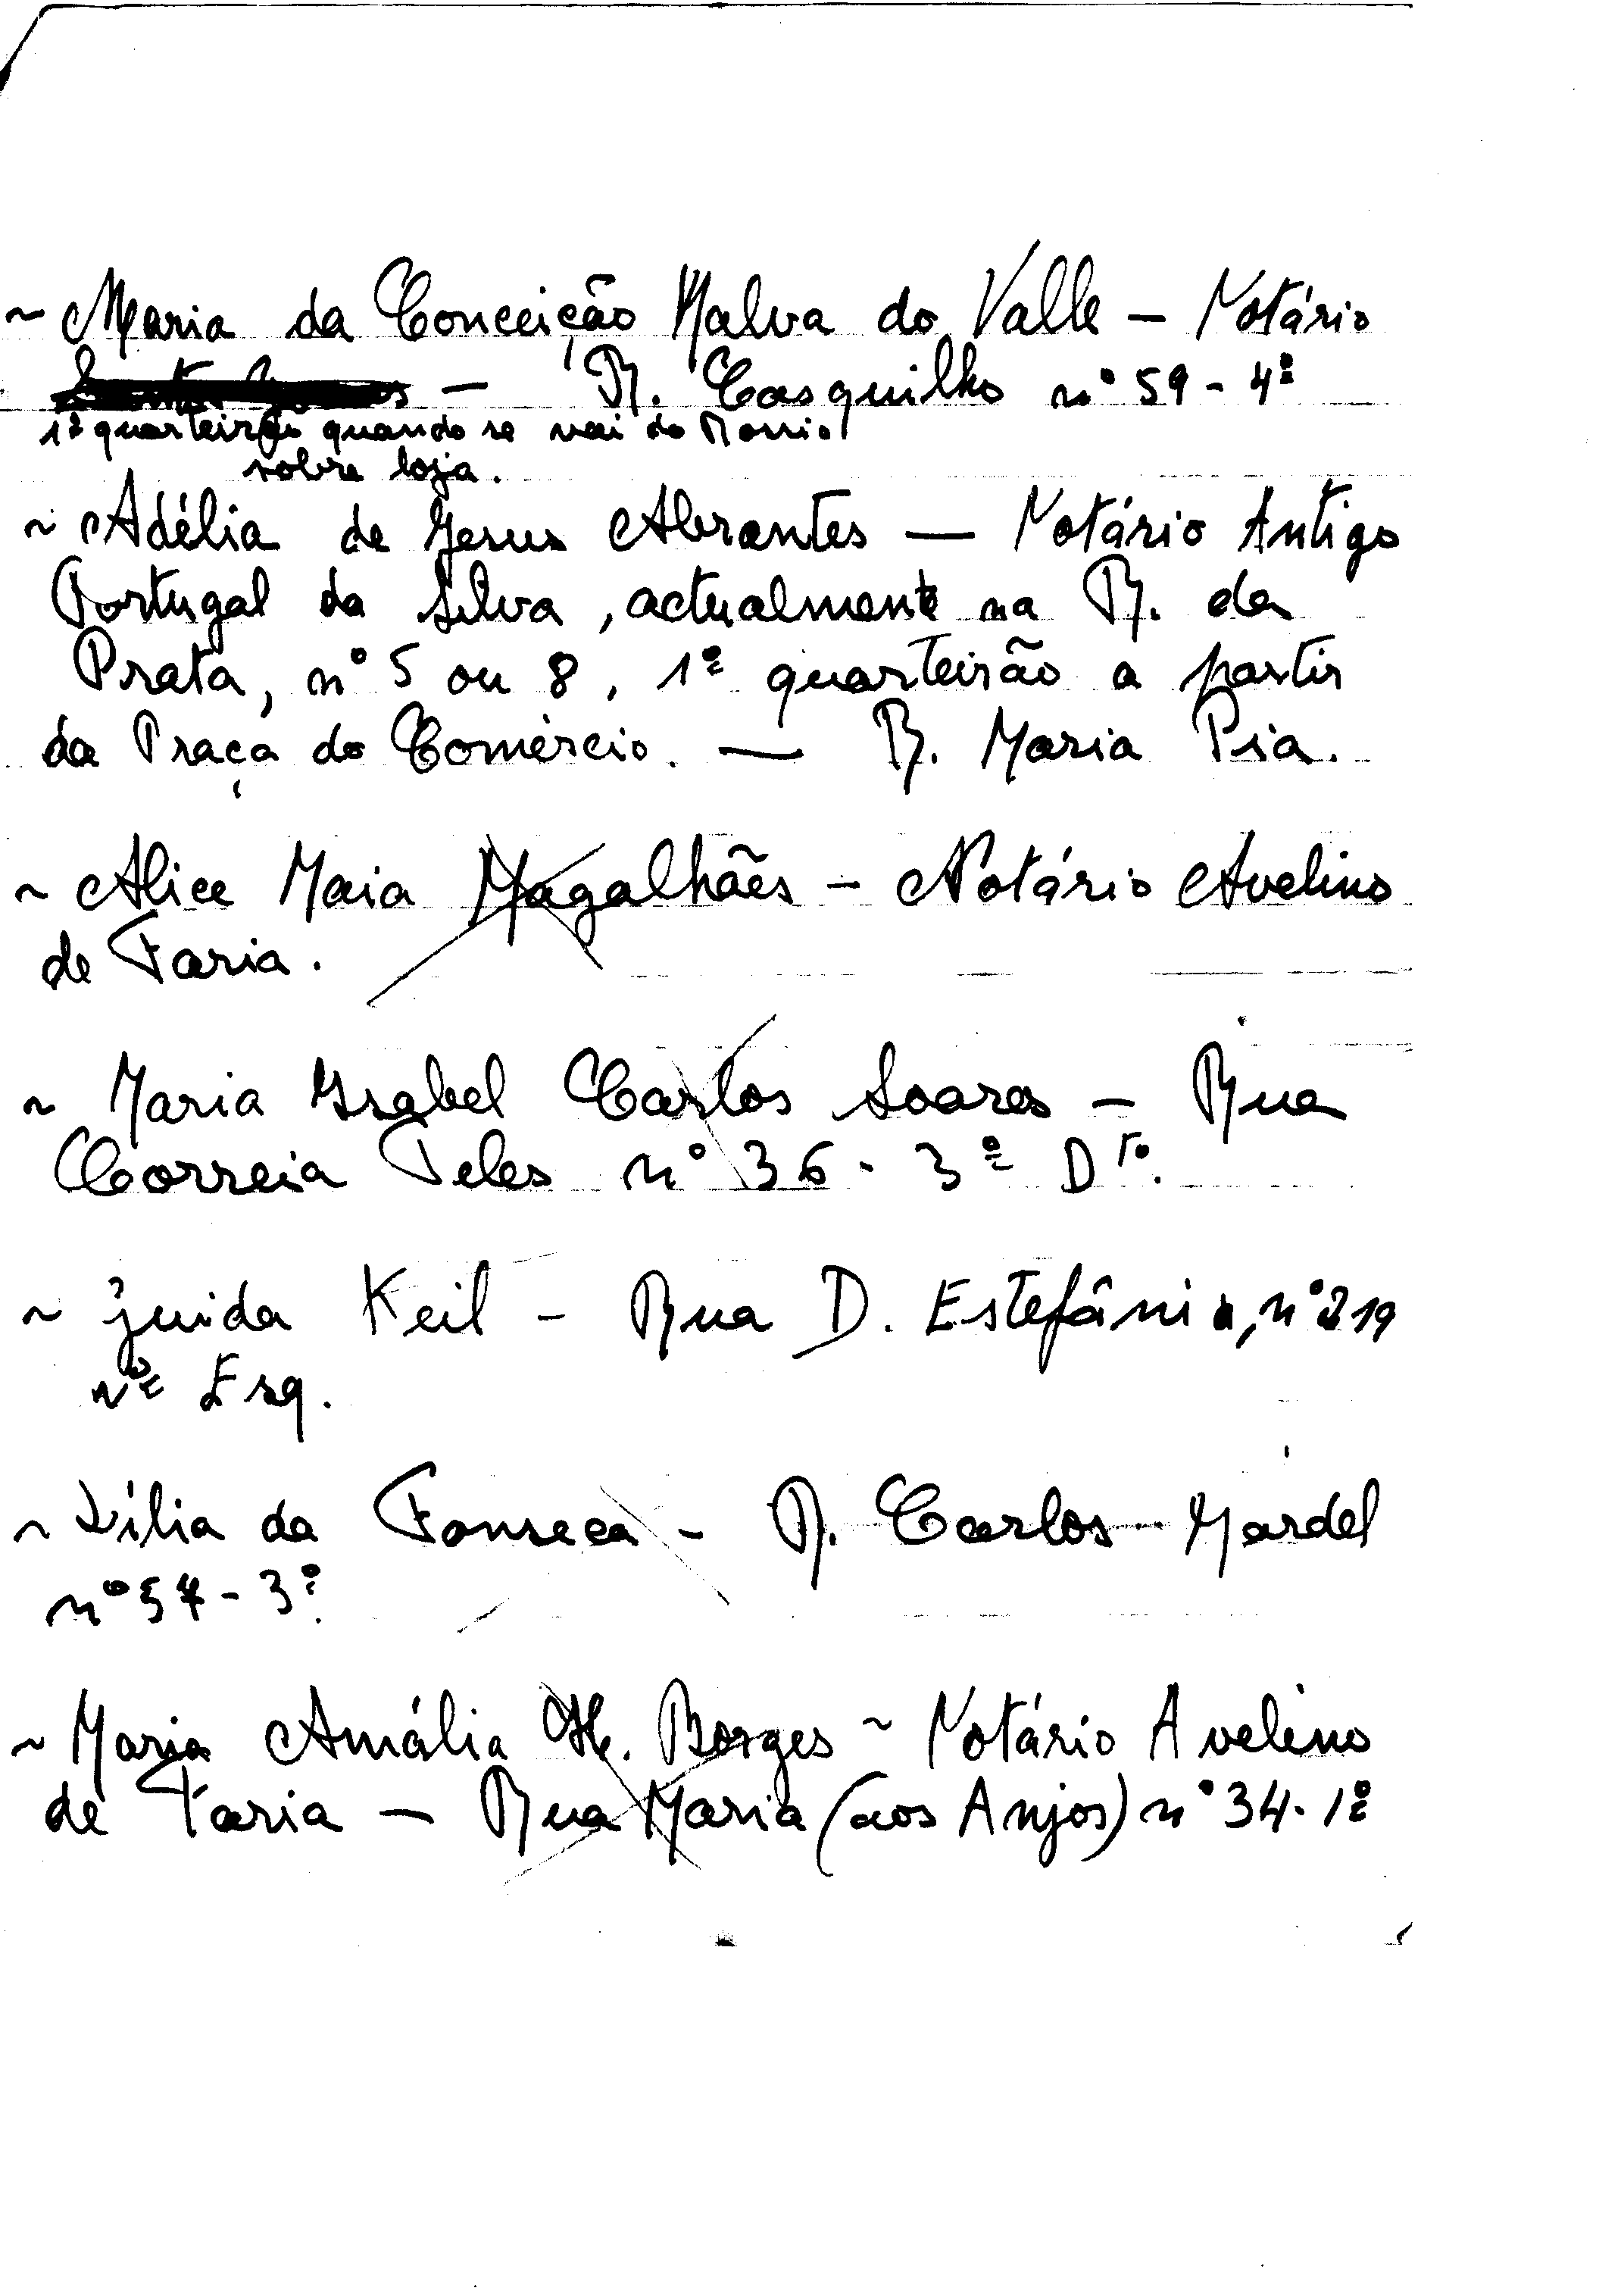 ~ Maria da Conceição Malva do Valle – Notário
– R. Casquilho nº 59 - 4º
1º quarteirão quando se vai do Rossio
sobre loja.
~ Adélia de Jesus Abrantes – Notário Antigo
Portugal da Silva, actualmente na R. da
Prata, nº 5 ou 8, 1º quarteirão a partir
da Praça do Comércio. – R. Maria Pia.
~ Alice Maia Magalhães – Notário Avelino
de Faria.
~ Maria Isabel Carlos Soares – Rua
Correia Teles nº 36 - 3º Dto.
~ Guida Keil – Rua D. Estefânia, nº 219
Esq.
~ Lília da Fonseca – R. Carlos Mardel
nº 57 - 3º
~ Maria Amália Borges ~ Notário Avelino
de Faria – Rua Maria (aos Anjos) nº 34 - 1º